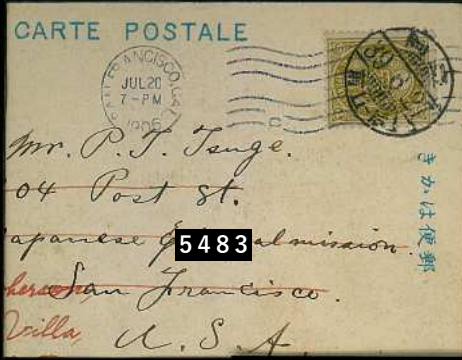 CARTE POSTALE
SAN FRANCISCO, CAL.
JUL 20
7-PM
1906
Mr. P. T. Tsuge.
04 Post St.
apanese
5483
al mission.
San Francisco.
Villa,
U. S. A.
郵便はかき